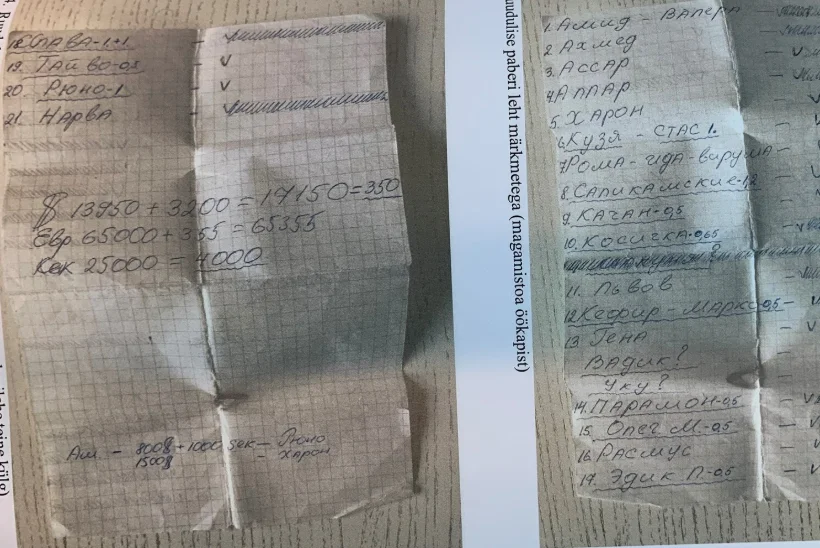 18. СЛАВА-1+1 –
19. ТАЙВО-0.5 – v
20. РЮНО-1 – v
21. НАРВА
$ 13950 + 3200 = 17150 = 350
Евр 65000 + 355 = 65355
Кек 25000 = 4000
Ам. – 800$ + 1000 sek – Рюно
1500$ – ХАРОН
uudulise paberi leht märkmetega (magamistoa öökapist)
teine külg)
1. Асмид – ВАЛЕРА –
2. Ахмед
3. АССАР
4. АЛЛАР
5. ХАРОН
6. Кузя – СТАС 1.
7. Рома – ида-вирума –
8. САПИКАМСКИЕ-1,2
9. КАЧАН-0,5
10. КОСИЧКА-0,65
11. ЛЬВОВ
12. Кефир – МАРКС-0,5 – v
13. Гена – v
ВАДИК?
Уку?
14. ПАРАМОН-0,5 – v
15. Олег М-0,5 – v
16. РАСМУС – v
17. Эдик П-0,5 – v